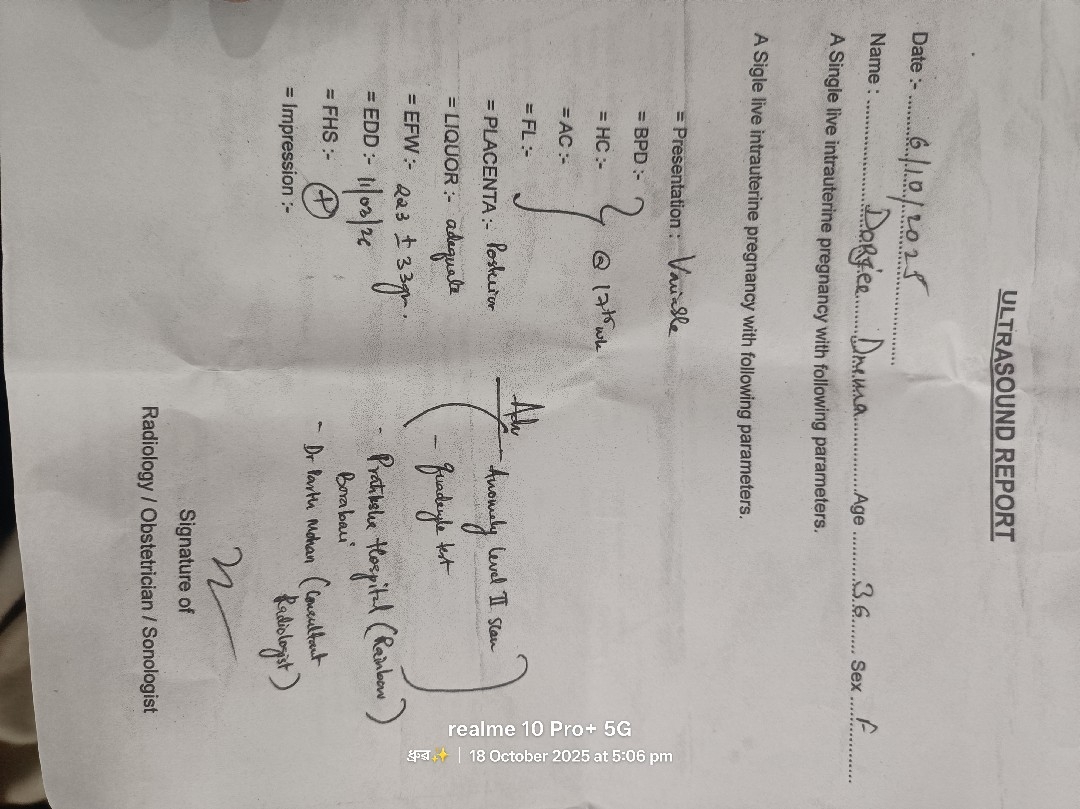 ULTRASOUND REPORT
Date :- 6/10/2025
Name : Dorjee Drema Age 36 Sex F
A Single live intrauterine pregnancy with following parameters.
A Sigle live intrauterine pregnancy with following parameters.
= Presentation : Variable
= BPD :-
= HC :- @ 17+5 wk
= AC :-
= FL :-
= PLACENTA :- Posterior
= LIQUOR :- adequate
= EFW :- 223 ± 33gm.
= EDD :- 11/03/26
= FHS :- +
= Impression :-
Adv - Anomaly level II scan
- quadruple test
- Pratiksha Hospital (Rainbow)
Borabari
- Dr Parth Mohan (Consultant
Radiologist)
Signature of
Radiology / Obstetrician / Sonologist
realme 10 Pro+ 5G
ধ্রুব✨ | 18 October 2025 at 5:06 pm